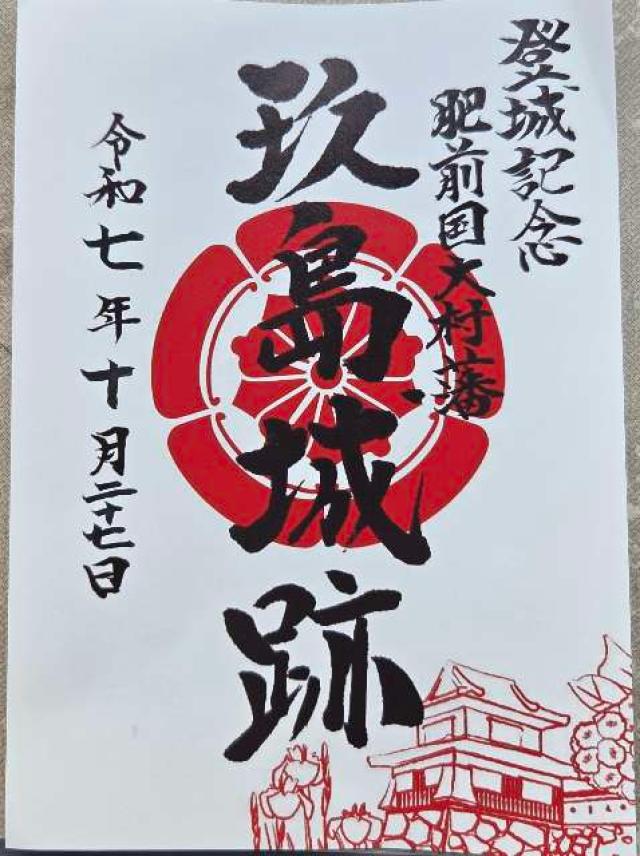 登城記念
肥前国大村藩
玖島城跡
令和七年十月二十七日